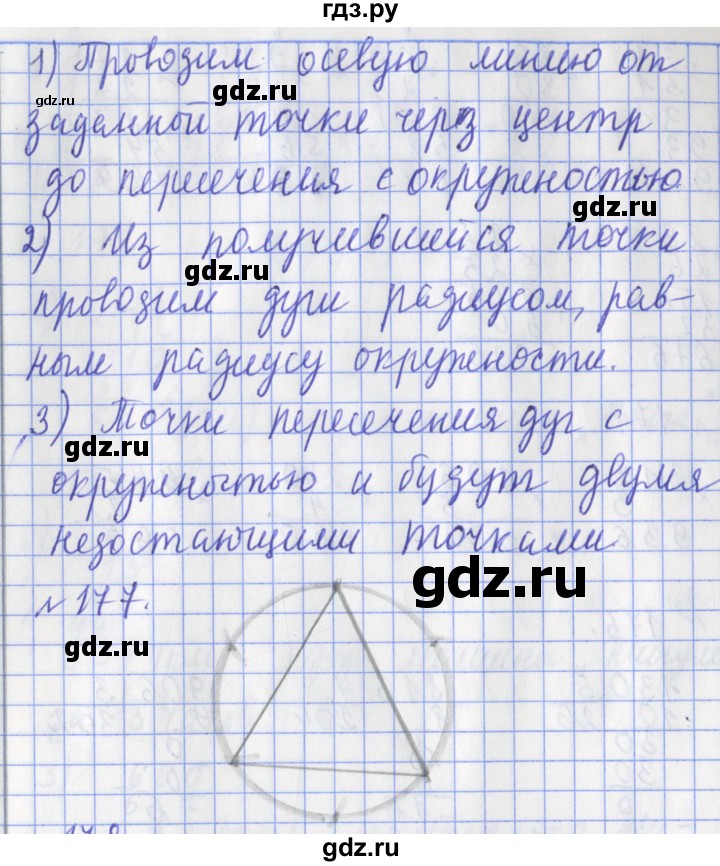 гдз.ру
1) Проводим осевую линию от
gdz.ru
gdz.ru
заданной точки через центр
до пересечения с окружностью
gdz.ru
2) Из получившейся точки
gdz.ru
проводим дуги радиусом, рав-
ным радиусу окружности.
3) Точки пересечения дуг с
gdz.ru
окружностью и будут двумя
недостающими точками.
gdz.ru
№ 177.
gdz.ru
gdz.ru